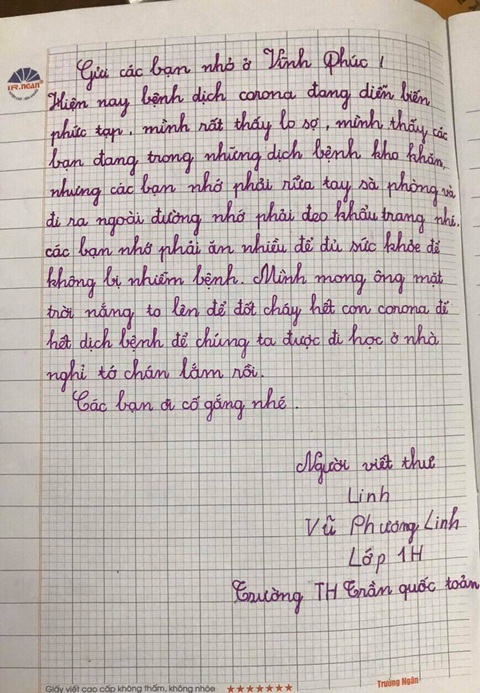 Gửi các bạn nhỏ ở Vĩnh Phúc!
Hiện nay bệnh dịch corona đang diễn biến
phức tạp, mình rất thấy lo sợ, mình thấy các
bạn đang trong những dịch bệnh kho khăn,
nhưng các bạn nhớ phải rửa tay sà phòng và
đi ra ngoài đường nhớ phải đeo khẩu trang nhé.
các bạn nhớ phải ăn nhiều để đủ sức khỏe để
không bị nhiễm bệnh. Mình mong ông mặt
trời nắng to lên để đốt cháy hết con corona để
hết dịch bệnh để chúng ta được đi học ở nhà
nghỉ tớ chán lắm rồi.
Các bạn ơi cố gắng nhé.
Người viết thư
Linh
Vũ Phương Linh
Lớp 1H
Trường TH Trần quốc toản
Giấy viết cao cấp không thấm, không nhòe
Trường Ngân